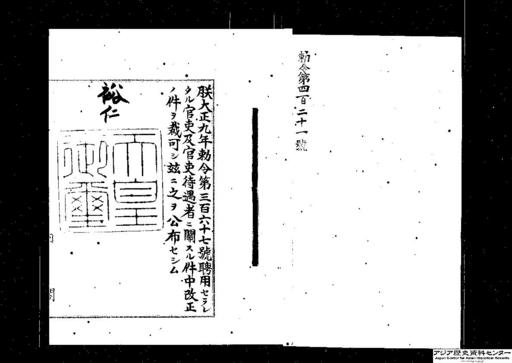 勅令第四百二十一號
朕大正九年勅令第三百六十七號聘用セラレ
タル官吏及官吏待遇者ニ關スル件中改正
ノ件ヲ裁可シ茲ニ之ヲ公布セシム
裕仁
天皇
御璽
内閣
アジア歴史資料センター
Japan Center for Asian Historical Records